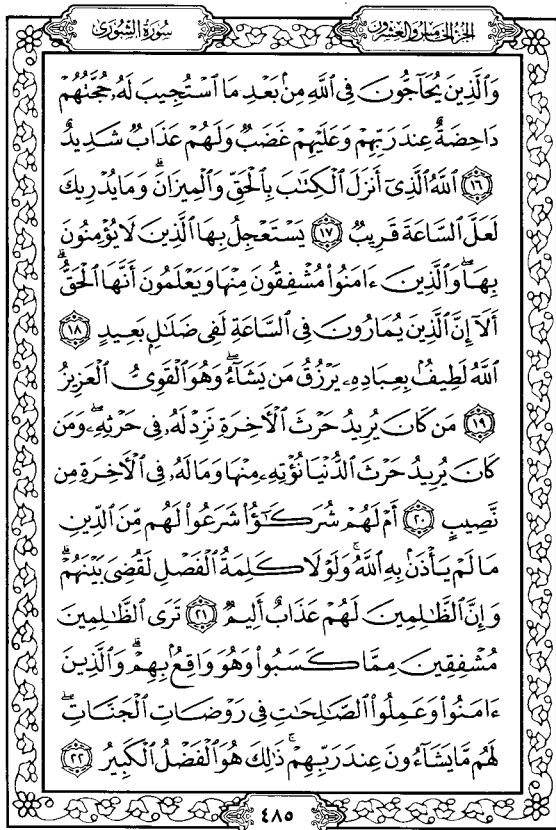 سُورَةُ الشُّورَىٰ
الجُزْءُ الخَامِسُ وَالعِشْرُونَ
وَٱلَّذِينَ يُحَآجُّونَ فِى ٱللَّهِ مِنۢ بَعْدِ مَا ٱسْتُجِيبَ لَهُۥ حُجَّتُهُمْ
دَاحِضَةٌ عِندَ رَبِّهِمْ وَعَلَيْهِمْ غَضَبٌ وَلَهُمْ عَذَابٌ شَدِيدٌ
١٦ ٱللَّهُ ٱلَّذِىٓ أَنزَلَ ٱلْكِتَٰبَ بِٱلْحَقِّ وَٱلْمِيزَانَ ۗ وَمَا يُدْرِيكَ
لَعَلَّ ٱلسَّاعَةَ قَرِيبٌ ١٧ يَسْتَعْجِلُ بِهَا ٱلَّذِينَ لَا يُؤْمِنُونَ
بِهَا ۖ وَٱلَّذِينَ ءَامَنُوا۟ مُشْفِقُونَ مِنْهَا وَيَعْلَمُونَ أَنَّهَا ٱلْحَقُّ ۗ
أَلَآ إِنَّ ٱلَّذِينَ يُمَارُونَ فِى ٱلسَّاعَةِ لَفِى ضَلَٰلٍۭ بَعِيدٍ ١٨
ٱللَّهُ لَطِيفٌۢ بِعِبَادِهِۦ يَرْزُقُ مَن يَشَآءُ ۖ وَهُوَ ٱلْقَوِىُّ ٱلْعَزِيزُ
١٩ مَن كَانَ يُرِيدُ حَرْثَ ٱلْءَاخِرَةِ نَزِدْ لَهُۥ فِى حَرْثِهِۦ ۖ وَمَن
كَانَ يُرِيدُ حَرْثَ ٱلدُّنْيَا نُؤْتِهِۦ مِنْهَا وَمَا لَهُۥ فِى ٱلْءَاخِرَةِ مِن
نَّصِيبٍ ٢٠ أَمْ لَهُمْ شُرَكَٰٓؤُا۟ شَرَعُوا۟ لَهُم مِّنَ ٱلدِّينِ
مَا لَمْ يَأْذَنۢ بِهِ ٱللَّهُ ۚ وَلَوْلَا كَلِمَةُ ٱلْفَصْلِ لَقُضِىَ بَيْنَهُمْ ۗ
وَإِنَّ ٱلظَّٰلِمِينَ لَهُمْ عَذَابٌ أَلِيمٌ ٢١ تَرَى ٱلظَّٰلِمِينَ
مُشْفِقِينَ مِمَّا كَسَبُوا۟ وَهُوَ وَاقِعٌۢ بِهِمْ ۗ وَٱلَّذِينَ
ءَامَنُوا۟ وَعَمِلُوا۟ ٱلصَّٰلِحَٰتِ فِى رَوْضَاتِ ٱلْجَنَّاتِ ۖ
لَهُم مَّا يَشَآءُونَ عِندَ رَبِّهِمْ ۚ ذَٰلِكَ هُوَ ٱلْفَضْلُ ٱلْكَبِيرُ ٢٢
٤٨٥